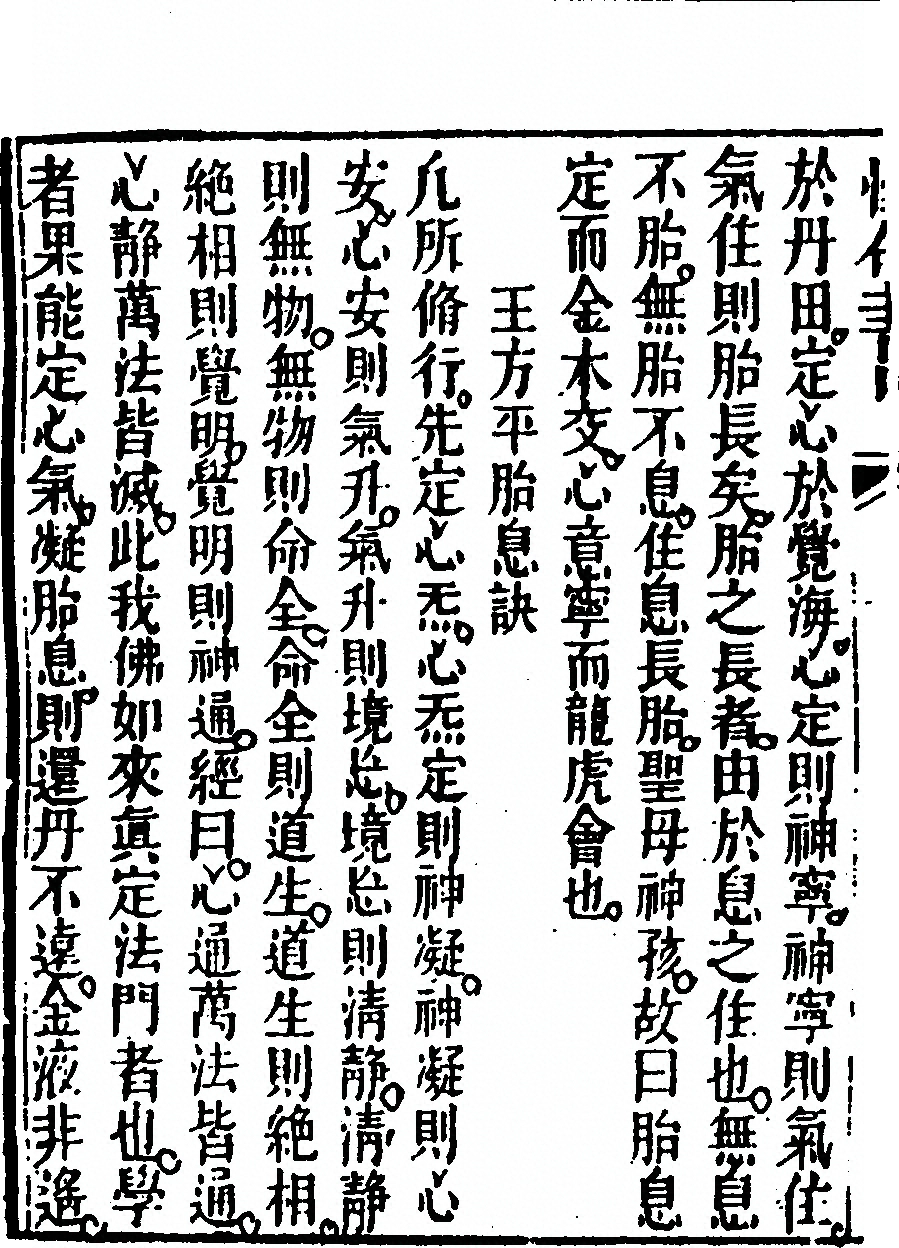 於丹田。定心於覺海。心定則神寧。神寧則氣住。
氣住則胎長矣。胎之長者。由於息之住也。無息
不胎。無胎不息。住息長胎。聖母神孩。故曰胎息
定而金木交。心意寧而龍虎會也。
王方平胎息訣
凡所脩行。先定心炁。心炁定則神凝。神凝則心
安。心安則氣升。氣升則境忘。境忘則清靜。清靜
則無物。無物則命全。命全則道生。道生則絕相。
絕相則覺明。覺明則神通。經曰。心通萬法皆通。
心靜萬法皆滅。此我佛如來眞定法門者也。學
者果能定心氣。凝胎息。則還丹不遠。金液非遙。